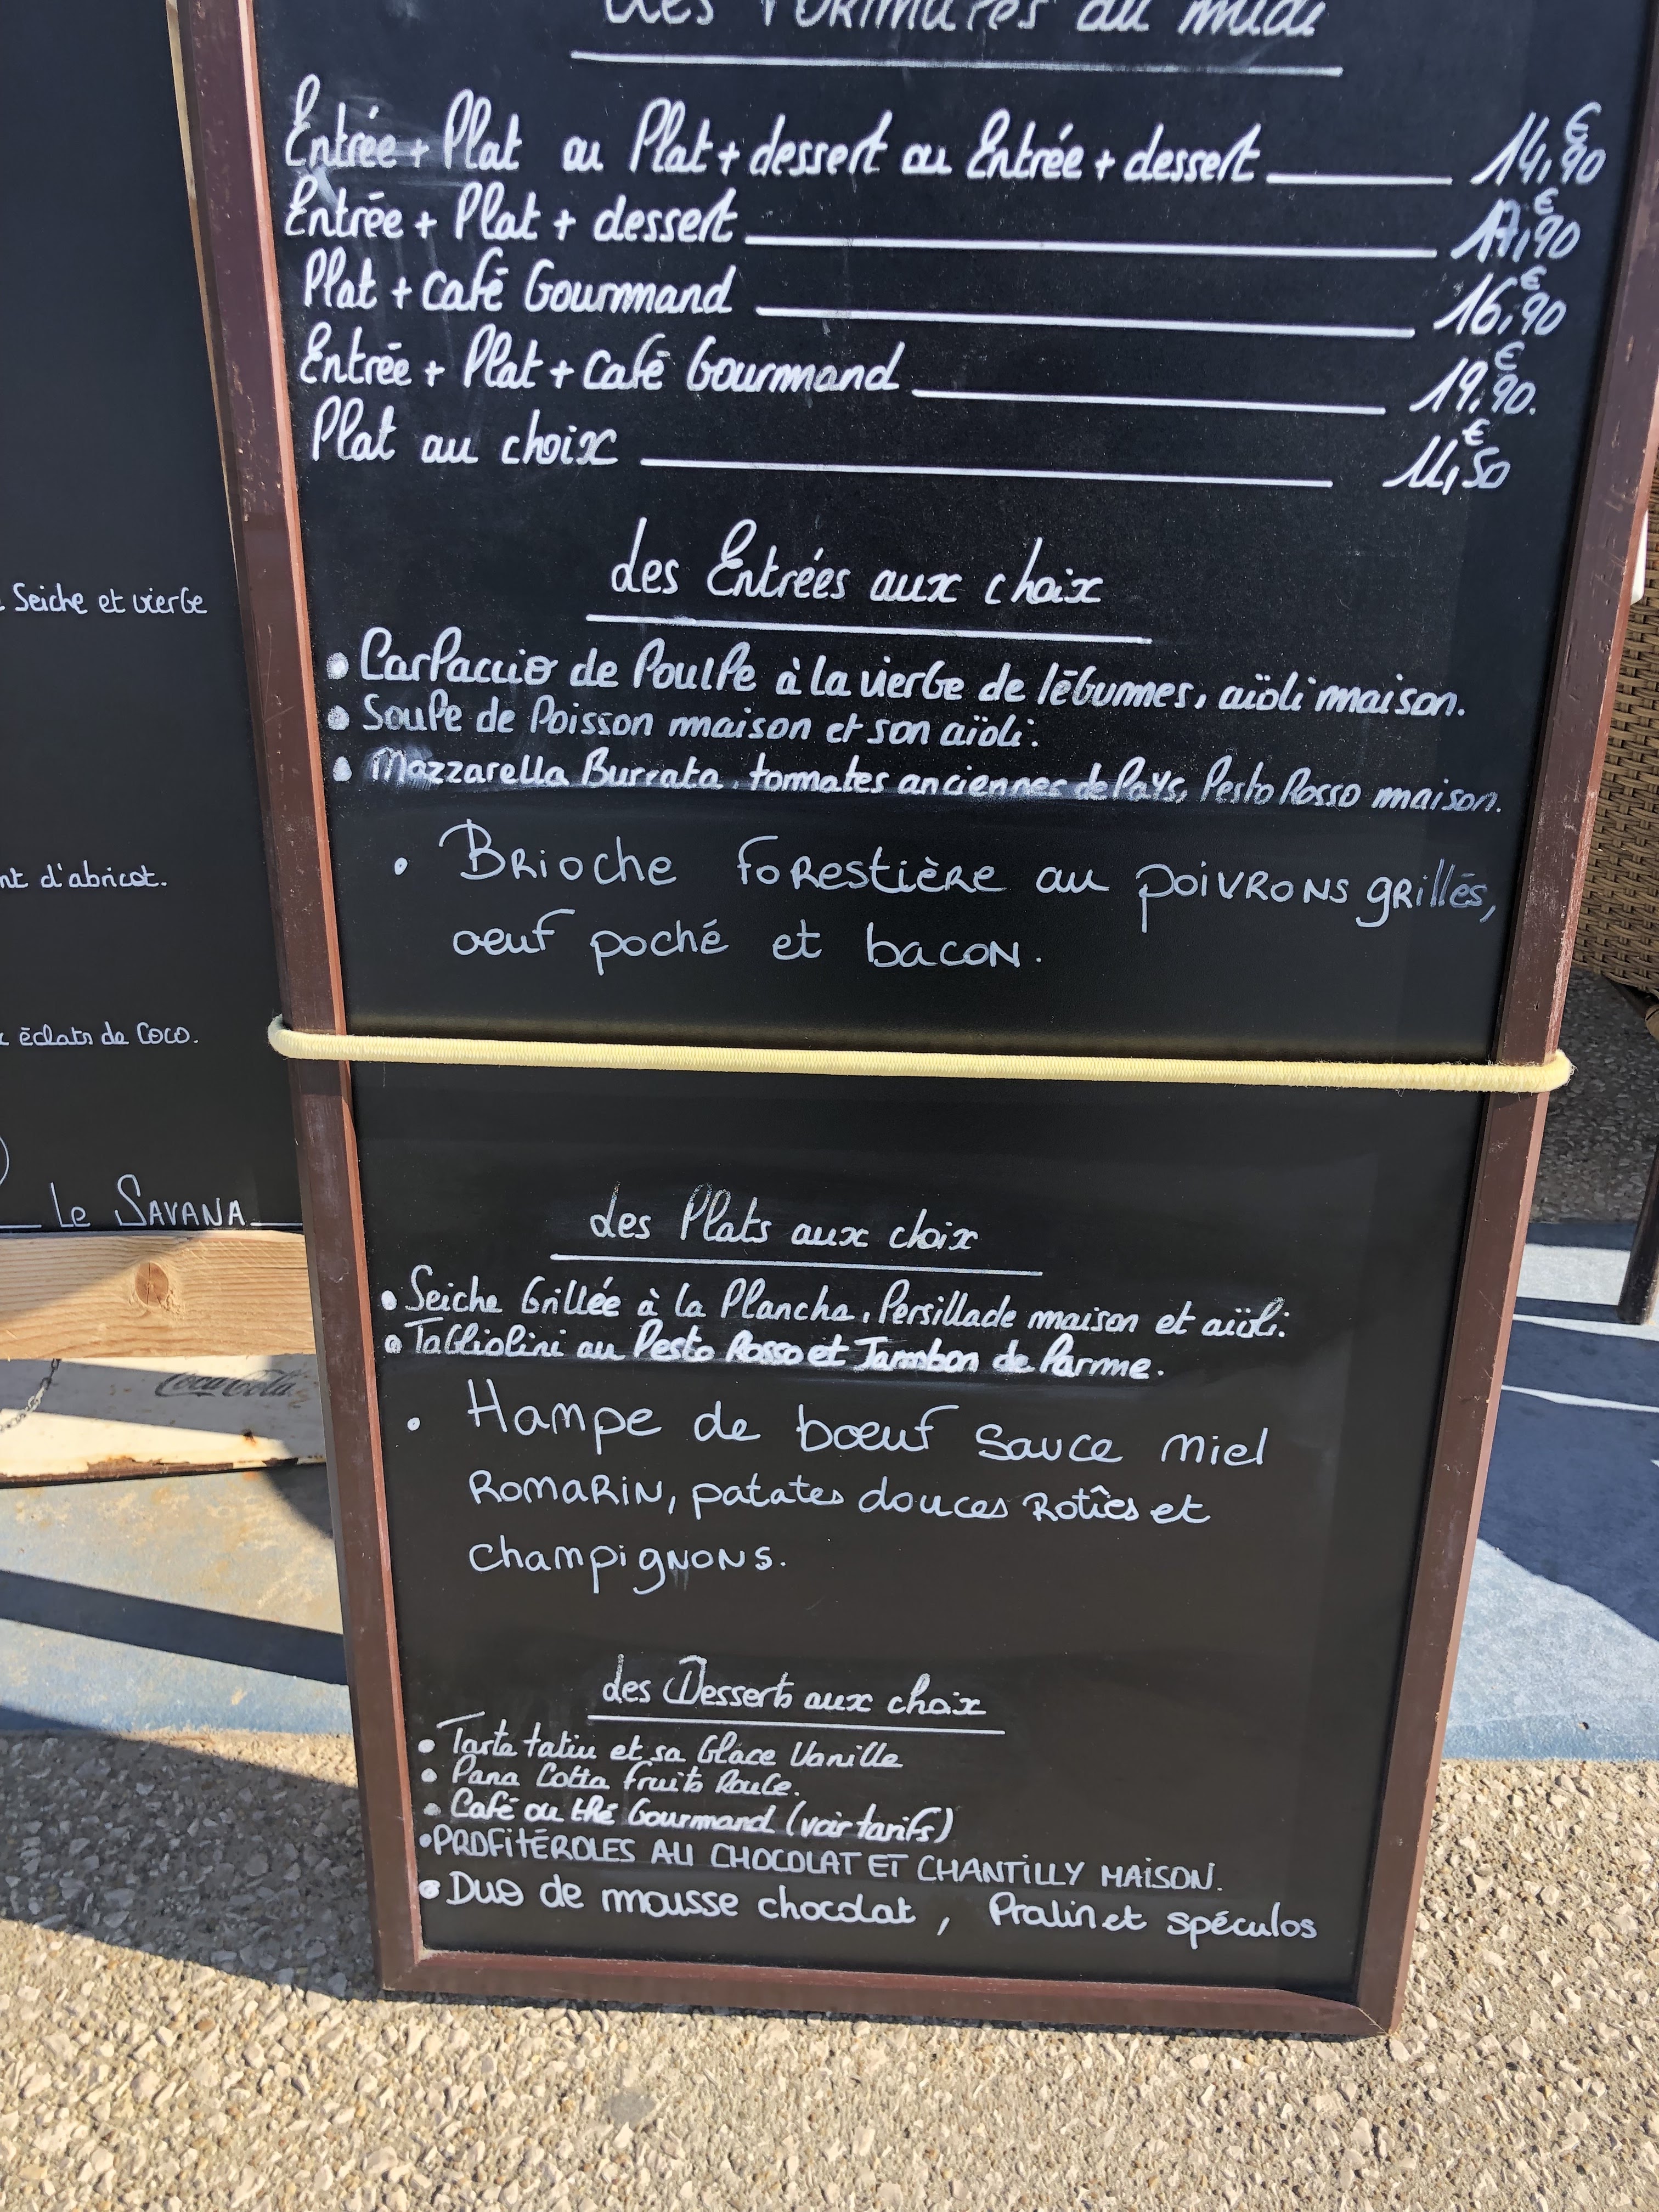 des Formules du midi
Entrée + Plat ou Plat + dessert ou Entrée + dessert 14,€90
Entrée + Plat + dessert 17,€90
Plat + Café Gourmand 16,€90
Entrée + Plat + Café Gourmand 19,€90.
Plat au choix 11,€50
des Entrées aux choix
• Carpaccio de Poulpe à la vierge de légumes, aïoli maison.
• Soupe de Poisson maison et son aïoli.
• Mozzarella Burrata, tomates anciennes de Pays, Pesto Rosso maison.
• Brioche forestière au poivrons grillés,
oeuf poché et bacon.
des Plats aux choix
• Seiche Grillée à la Plancha, Persillade maison et aïoli.
• Tagliolini au Pesto Rosso et Jambon de Parme.
• Hampe de boeuf sauce miel
Romarin, patates douces Rotîes et
champignons.
des Desserts aux choix
• Tarte tatin et sa Glace Vanille
• Pana Cotta fruits Rouge.
• Café ou thé Gourmand (voir tarifs)
• PROFITÉROLES AU CHOCOLAT ET CHANTILLY MAISON.
• Duo de mousse chocolat, Pralin et spéculos
Seiche et vierge
nt d'abricot.
éclats de Coco.
Le SAVANA
Coca-Cola